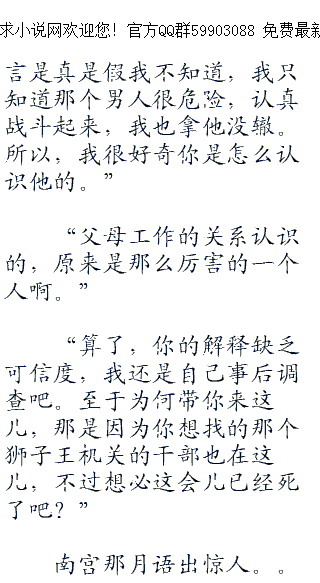 求小说网欢迎您！官方QQ群59903088 免费最新
言是真是假我不知道，我只
知道那个男人很危险，认真
战斗起来，我也拿他没辙。
所以，我很好奇你是怎么认
识他的。”
“父母工作的关系认识
的，原来是那么厉害的一个
人啊。”
“算了，你的解释缺乏
可信度，我还是自己事后调
查吧。至于为何带你来这
儿，那是因为你想找的那个
狮子王机关的干部也在这
儿，不过想必这会儿已经死
了吧？”
南宫那月语出惊人。。